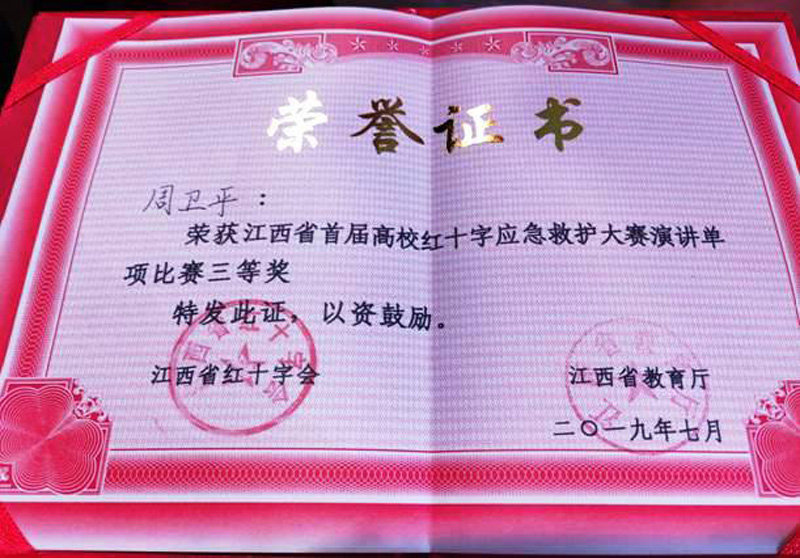 荣誉证书
周卫平：
荣获江西省首届高校红十字应急救护大赛演讲单
项比赛三等奖
特发此证，以资鼓励。
江西省红十字会
江西省教育厅
二〇一九年七月